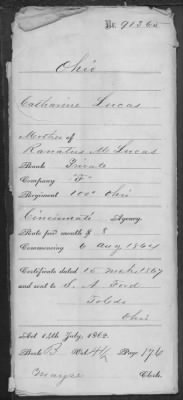 No. 91365
Ohio
Catharine Lucas
Mother of
Ranatus M. Lucas
Rank Private
Company "F"
Regiment 100" Ohio
Cincinnati Agency.
Rate per month $ 8
Commencing 6 Aug 1864
Certificate dated 15 1867
and sent to S. A. Ford
Toledo
Ohio
Act 14th July, 1862.
Book B Vol 4½ Page 176
Clerk.